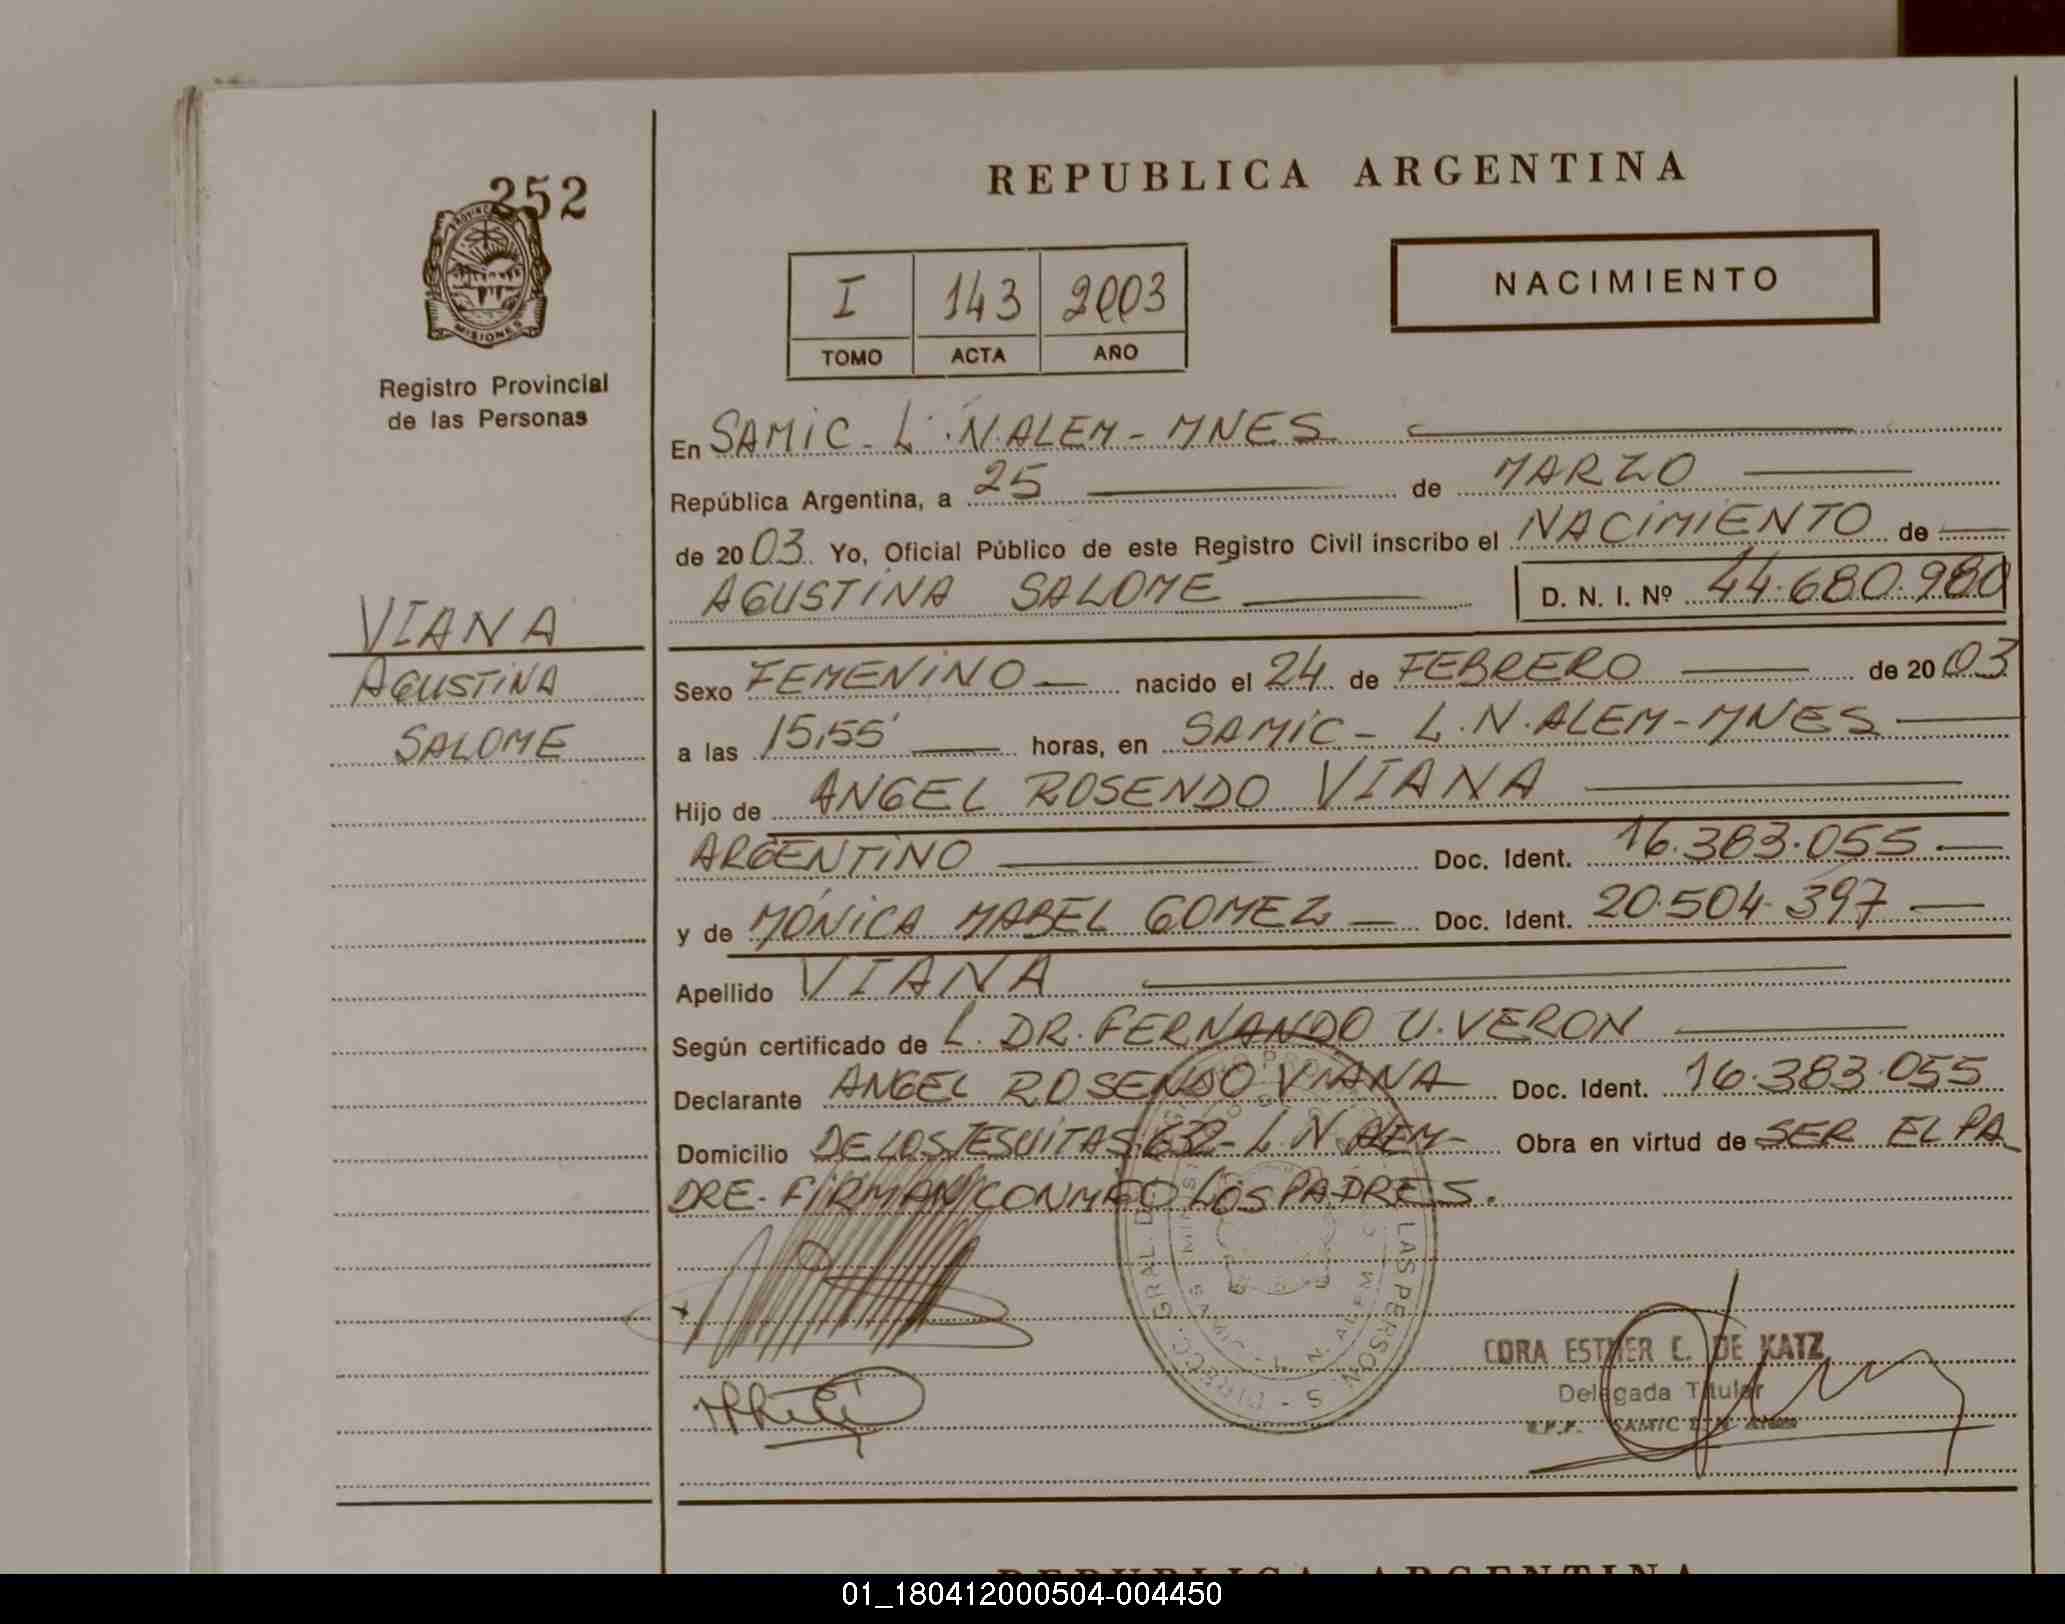 252
PROVINCIA
MISIONES
Registro Provincial
de las Personas
VIANA
AGUSTINA
SALOME
REPUBLICA ARGENTINA
I 143 2003
TOMO ACTA AÑO
NACIMIENTO
En SAMIC - L. N. ALEM - MNES
República Argentina, a 25 de MARZO
de 2003. Yo, Oficial Público de este Registro Civil inscribo el NACIMIENTO de
AGUSTINA SALOME D. N. I. Nº 44.680.980
Sexo FEMENINO nacido el 24 de FEBRERO de 2003
a las 15,55' horas, en SAMIC - L. N. ALEM - MNES
Hijo de ANGEL ROSENDO VIANA
ARGENTINO Doc. Ident. 16.383.055
y de MÓNICA MABEL GOMEZ Doc. Ident. 20.504.397
Apellido VIANA
Según certificado de L. DR. FERNANDO U. VERON
Declarante ANGEL ROSENDO VIANA Doc. Ident. 16.383.055
Domicilio DE LOS JESUITAS 632 - L N ALEM - Obra en virtud de SER EL PA
DRE. FIRMAN CONMIGO LOS PADRES.
CORA ESTHER C. DE KATZ
Delegada Titular
SAMIC L. N. Alem
REPUBLICA ARGENTINA
01_180412000504-004450